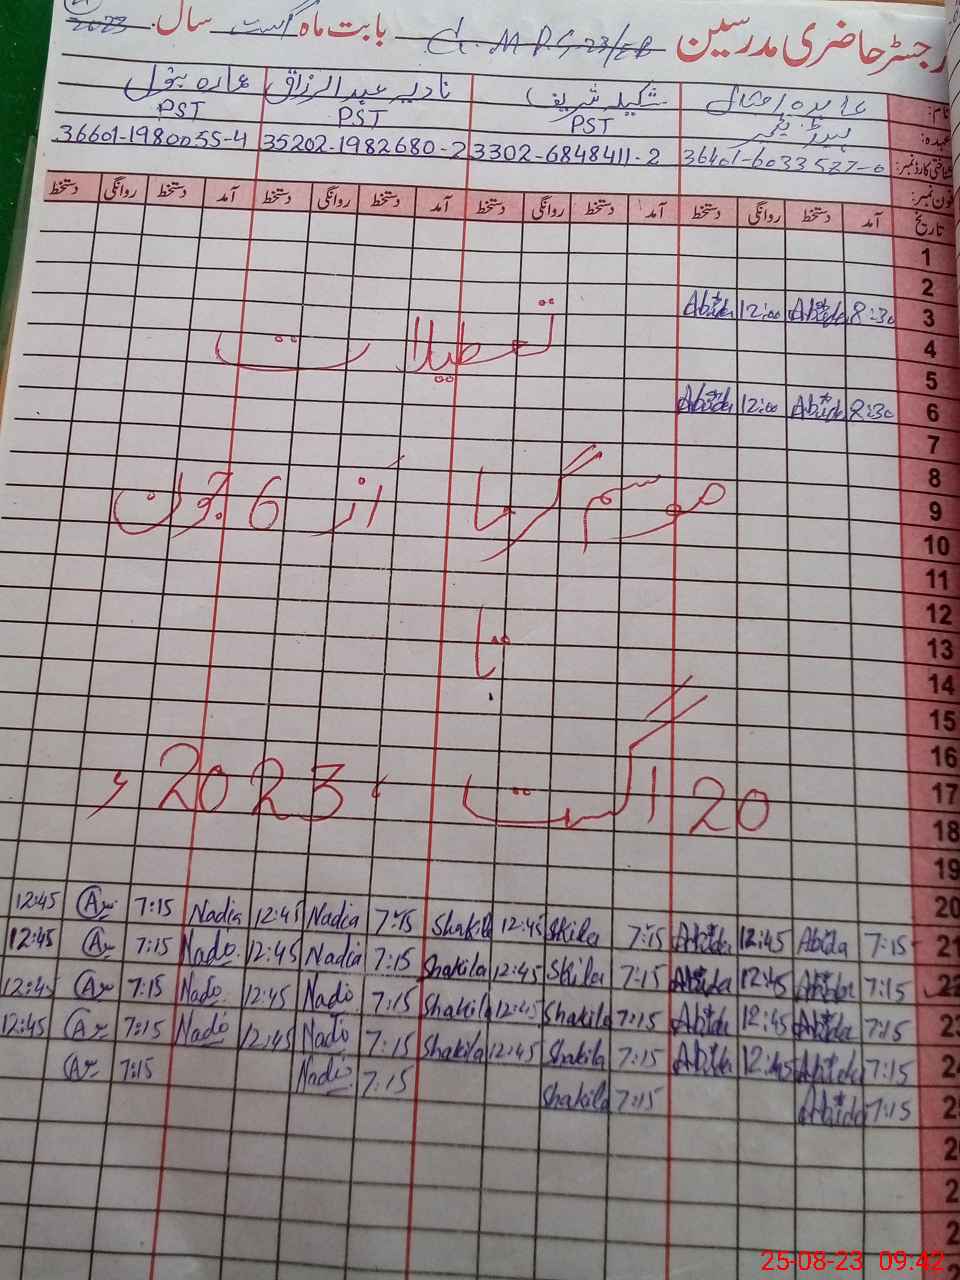 رجسٹر حاضری مدرسین بابت ماہ اگست سال 2023
نام: شکیلہ شریف نادیہ عبدالرزاق
عہدہ: ہیڈ ٹیچر PST PST PST
شناختی کارڈ نمبر: 36401-6033527-0 3302-6848411-2 35202-1982680-2
فون نمبر:
تاریخ آمد دستخط روانگی دستخط آمد دستخط روانگی دستخط آمد دستخط روانگی دستخط آمد دستخط روانگی دستخط
1
2
3 8:30 Abida 12:00 Abida
تعطیلات
4
5
6 8:30 Abida 12:00 Abida
7
8
9
موسم گرما از 6 جون
10
11
12
13
تا
14
15
16
17
20 اگست 2023ء
18
19
20
21 7:15 Abida 12:45 Abida 7:15 Skila 12:45 Shakila 7:15 Nadia 12:45 Nadia 7:15 12:45
22 7:15 Abida 12:45 Abida 7:15 Skila 12:45 Shakila 7:15 Nadia 12:45 Nado 7:15 12:45
23 7:15 Abida 12:45 Abida 7:15 Shakila 12:45 Shakila 7:15 Nado 12:45 Nado 7:15 12:45
24 7:15 Abida 12:45 Abida 7:15 Shakila 12:45 Shakila 7:15 Nado 12:45 Nado 7:15 12:45
7:15 Abida 7:15 Shakila 7:15 Nado 7:15
25-08-23 09:42